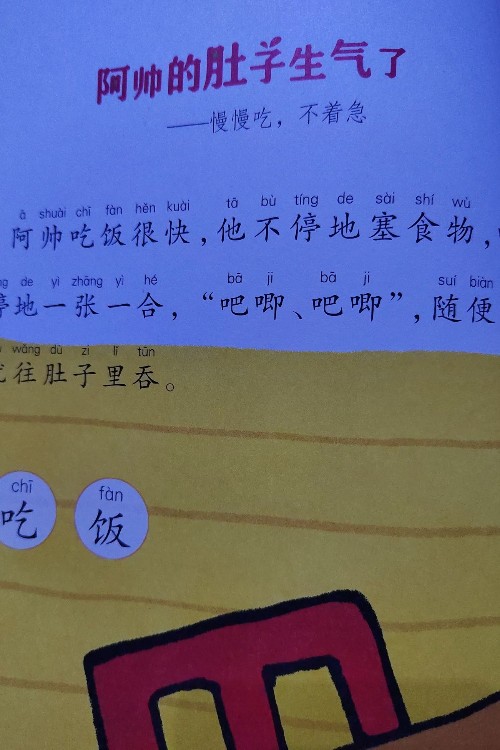 阿帅的肚子生气了
——慢慢吃，不着急
ā shuài chī fàn hěn kuài tā bù tíng de sāi shí wù
阿帅吃饭很快，他不停地塞食物，
de yì zhāng yì hé bā jī bā jī suí biàn
停地一张一合，“吧唧、吧唧”，随便
wǎng dù zi lǐ tūn
往肚子里吞。
chī fàn
吃 饭